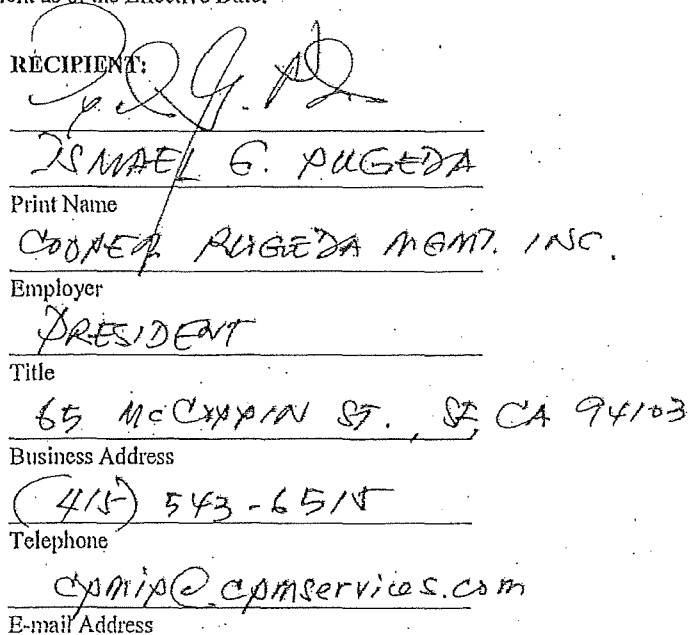 as of the Effective Date.
RECIPIENT:
ISMAEL G. PUGEDA
Print Name
COOPER PUGEDA MGMT. INC.
Employer
PRESIDENT
Title
65 McCOPPIN ST., SF, CA 94103
Business Address
(415) 543-6515
Telephone
cpmip@cpmservices.com
E-mail Address